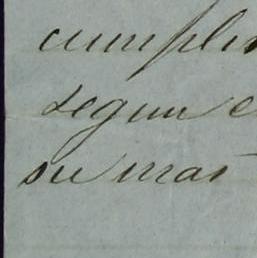 cumpli
segun e
su mas